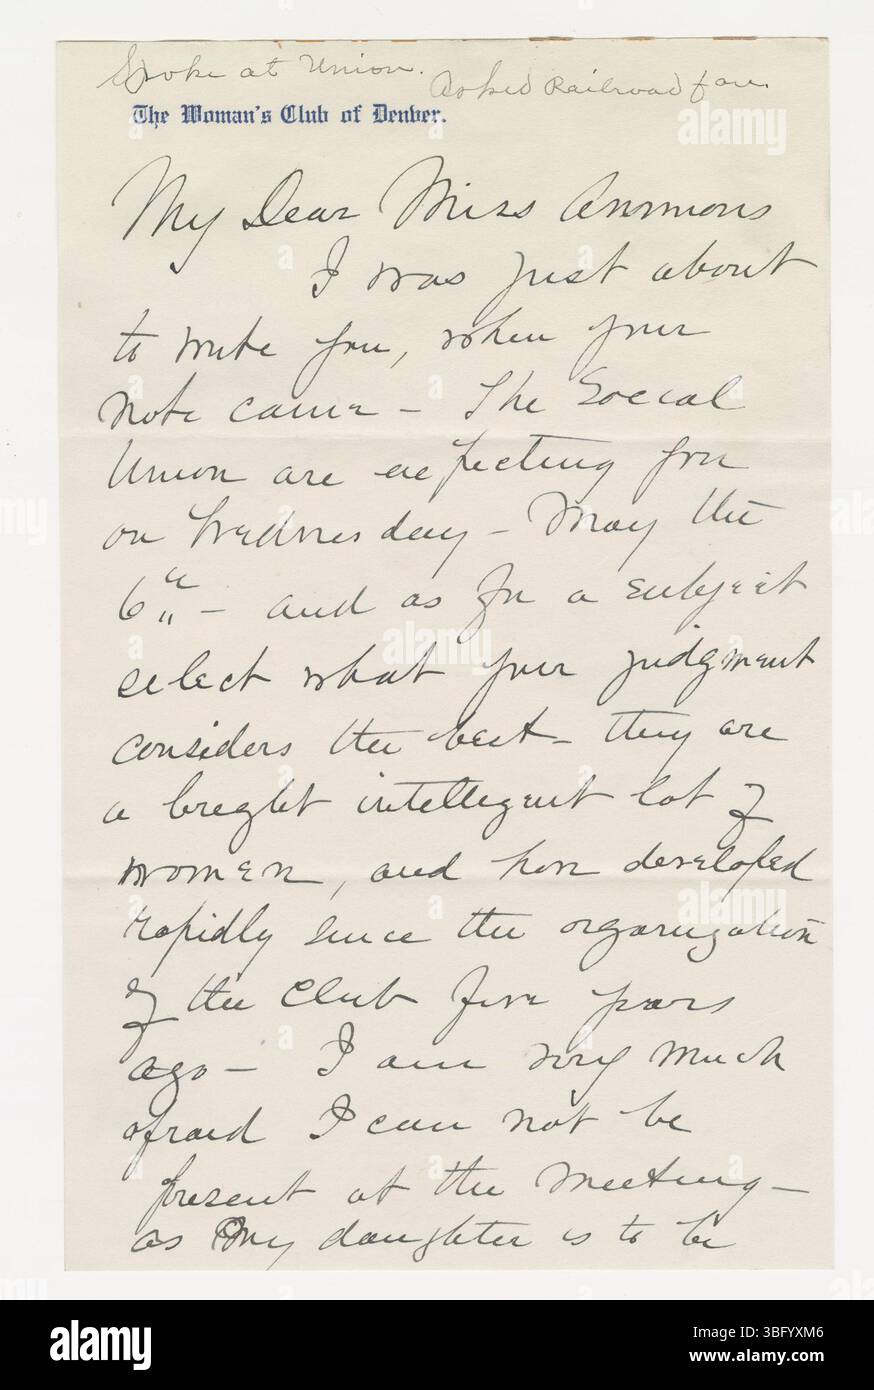 Spoke at Union. Asked Railroad fare.
The Woman's Club of Denver.
My Dear Miss Ammons
I was just about
to write you, when your
note came – The Social
Union are expecting you
on Wednesday – May the
6th – and as for a subject
select what your judgment
considers the best – they are
a bright intelligent lot of
women, and have developed
rapidly since the organization
of the Club five years
ago – I am very much
afraid I can not be
present at the meeting –
as my daughter is to be
alamy
Image ID: 3BFYXM6
www.alamy.com